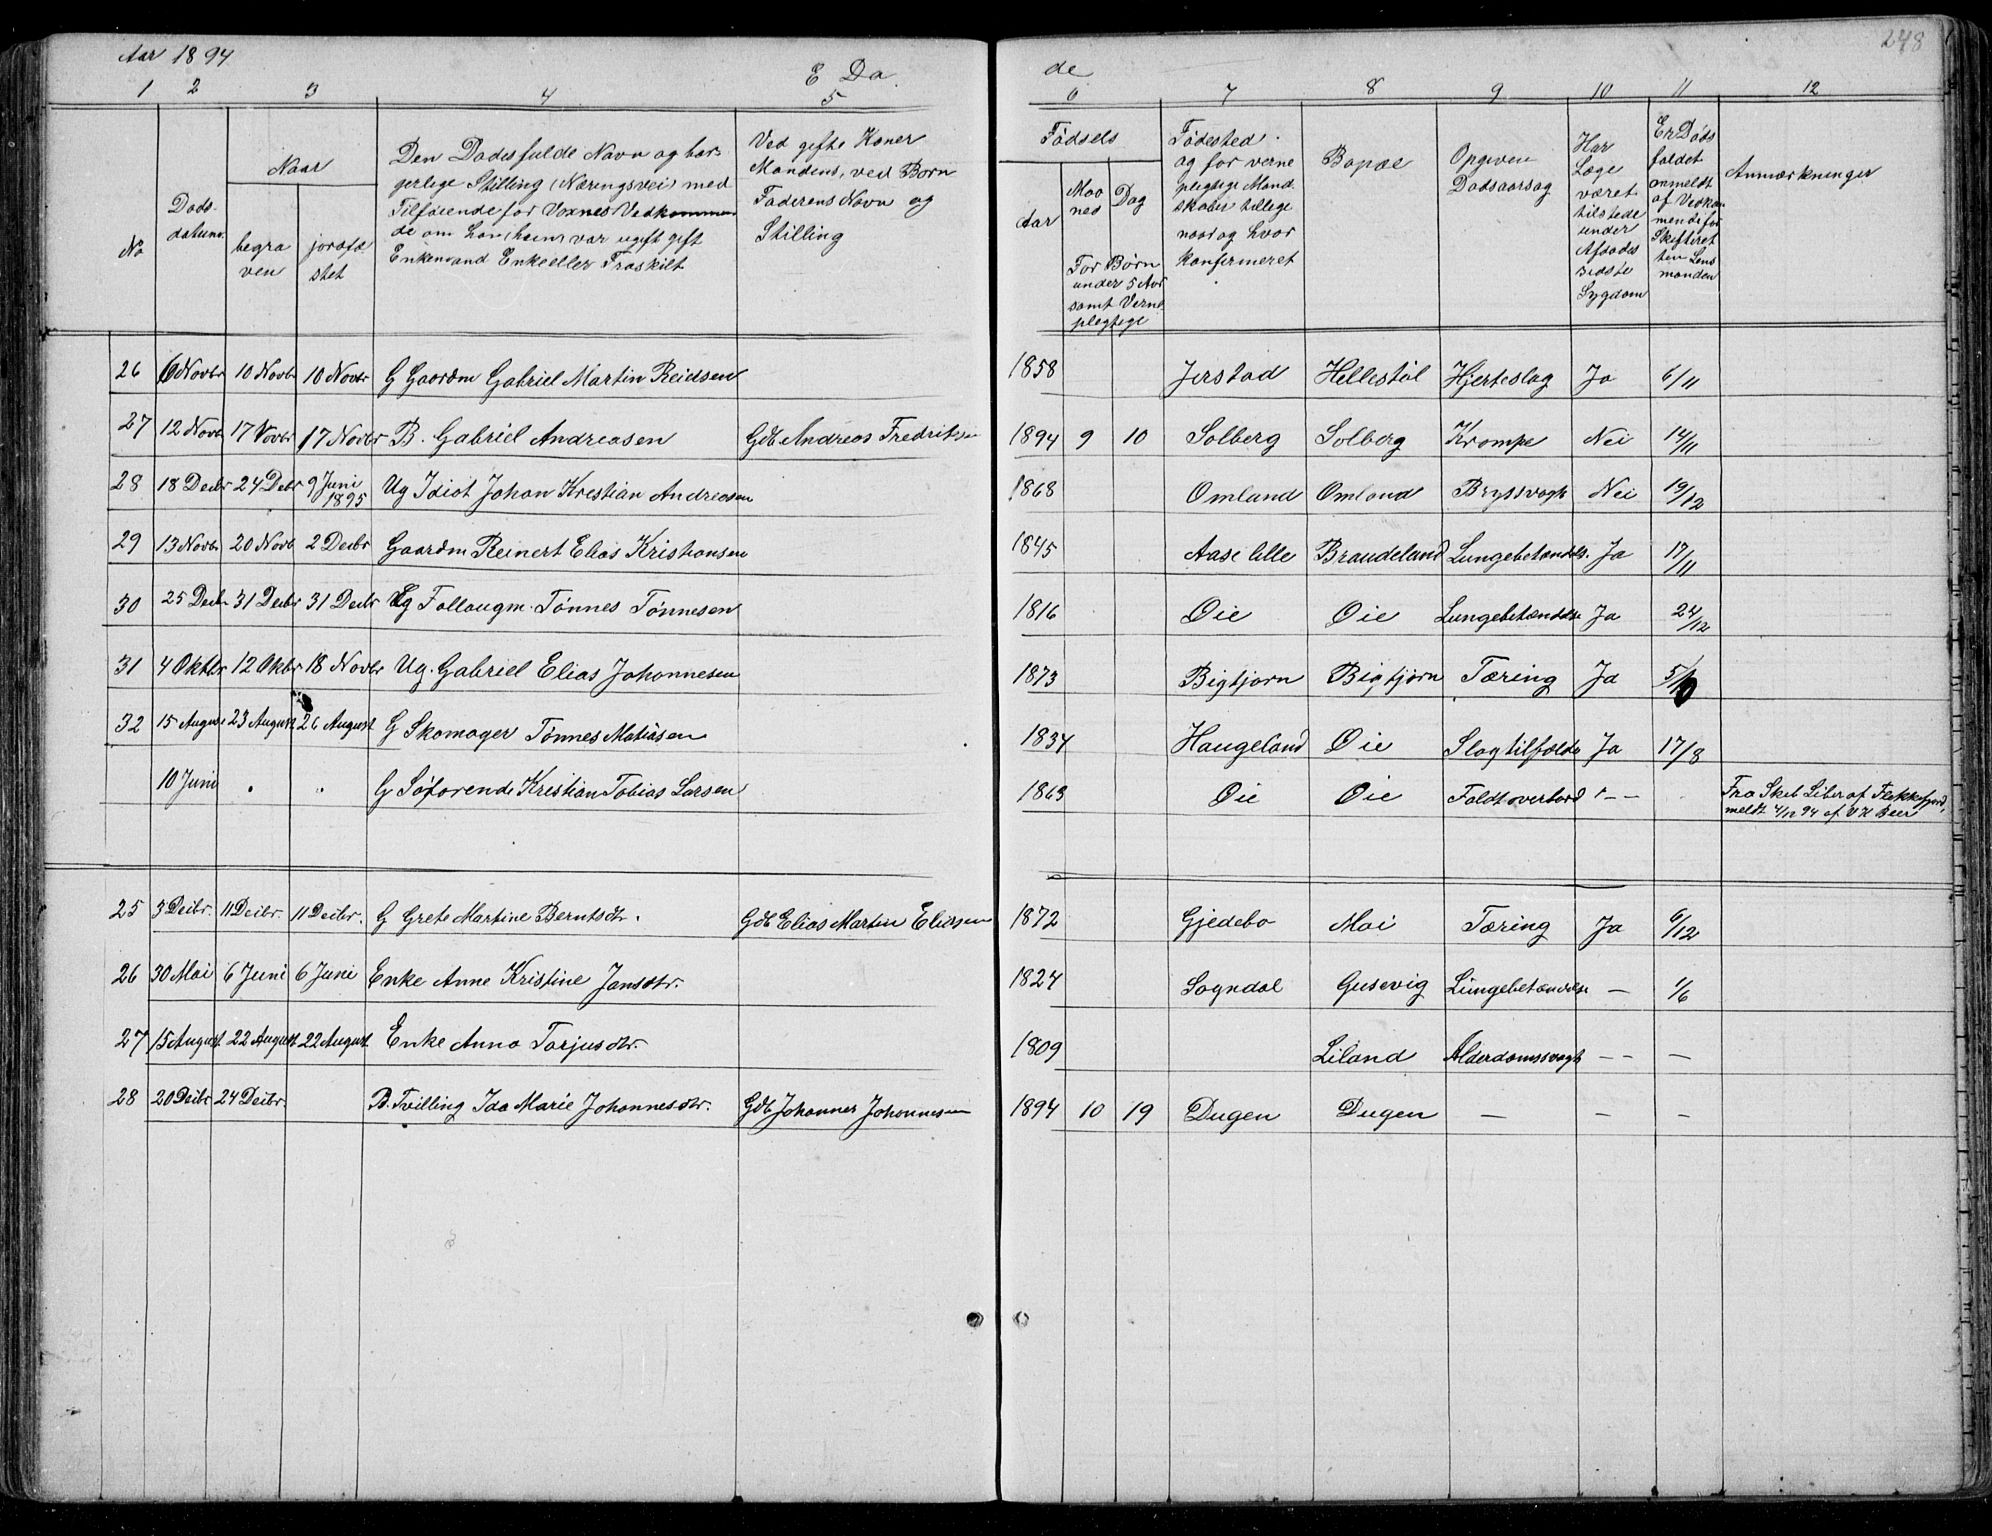 Aar 1894
E Dø
de
248
1 2 3 4 5 6 7 8 9 10 11 12
No
Døds-
datum.
Naar
begra
ven
jordfæ
stet
Den Dødes fulde Navn og bor-
gerlige Stilling (Næringsvei) med
Tilføiende for Voxnes Vedkommen
de om han, hun var ugift gift
Enkemand Enke eller Fraskilt
Ved gifte Koner
Mandens, ved Børn
Faderens Navn og
Stilling
Fødsels
Aar
Maa
ned
Dag
For Børn
under 5 Aar
samt Verne-
plegtige
Fødested
og for verne
plegtige Mand
skaber tillige
naar og hvor
konfirmeret
Bopæl
Opgiven
Dødsaarsag
Har
Læge
været
tilstede
under
Afdødes
sidste
Sygdom
Er Døds
faldet
anmeldt
af Vedkom
mende for
Skifteret
ten Lens
manden
Anmærkninger
26 6 Novbr 10 Novbr 10 Novbr G Gaardm Gabriel Martin Reidsen 1858 Jerstad Hellestøl Hjerteslag Ja 6/11
27 12 Novbr 17 Novbr 17 Novbr B. Gabriel Andreasen Gdb Andreas Fredriksen 1894 9 10 Solberg Solberg Krampe Nei 14/11
28 18 Decbr 24 Decbr 9 Juni 1895 Ug Idiot Johan Kristian Andreasen 1868 Omland Omland Brystsvagh Nei 19/12
29 13 Novbr 20 Novb 2 Decbr Gaardm Reinert Elias Kristiansen 1845 Aase lille Braudeland Lungebetændels. Ja 17/11
30 25 Decbr 31 Decbr 31 Decbr Ug Follaugm. Tønnes Tønnesen 1816 Øie Øie Lungebetændelse Ja 24/12
31 4 Oktbr 12 Oktbr 18 Novbr Ug. Gabriel Elias Johannesen 1873 Bigtjørn Bigtjørn Tæring Ja 5/10
32 15 August 23 August 26 August G Skomager Tønnes Matiasen 1834 Haugeland Øie Slagtilfælde Ja 17/8
10 Juni " " G Søfarende Kristian Tobias Larsen 1863 Øie Øie Faldt overbord - - Fra Skib Liber af Flekkefjord,
meldt 4/12 94 af V H Beer
25 3 Decbr. 11 Decbr. 11 Decbr. G Grete Martine Berntsdtr. Gdb Elias Martin Eliasen 1872 Gjedebo Moi Tæring Ja 6/12
26 30 Mai 6 Juni 6 Juni Enke Anne Kristine Jansdtr. 1824 Sogndal Gusevig Lungebetændelse — 1/6
27 15 August 22 August 22 August Enke Anna Torjusdtr. 1809 Liland Alderdomssvagh - - —
28 20 Decbr 24 Decbr. B. Tvilling Ida Marie Johannesdtr. Gdb Johannes Johannesen 1894 10 19 Dugen Dugen — — —